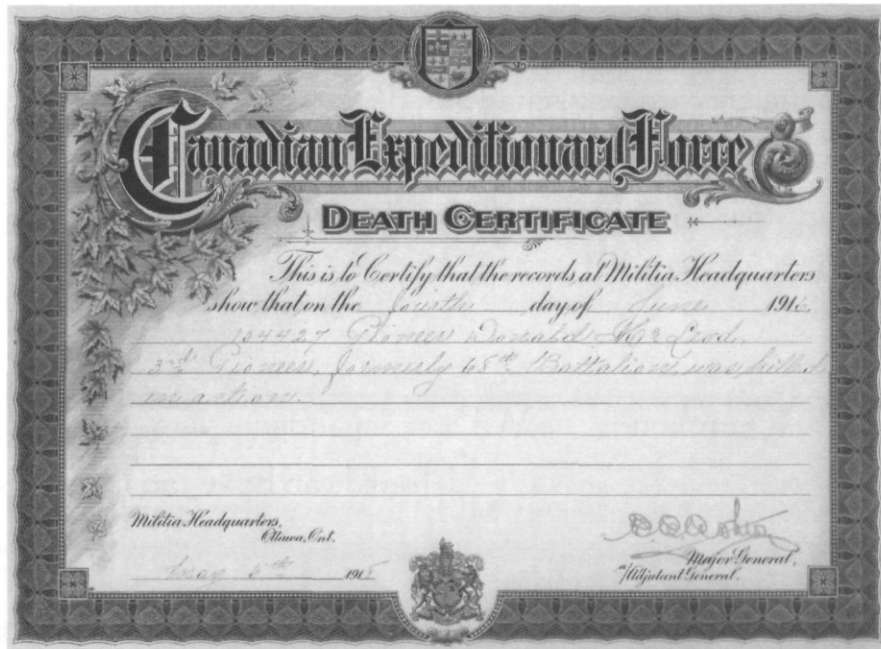 Canadian Expeditionary Force
DEATH CERTIFICATE
This is to Certify that the records at Militia Headquarters
show that on the fourth day of June 1916.
Pioneer Donald McLeod.
3rd Pioneer, formerly 68th Battalion, was killed
in action.
Militia Headquarters,
Ottawa, Ont.
May 6th 1918
Major General,
Adjutant General.